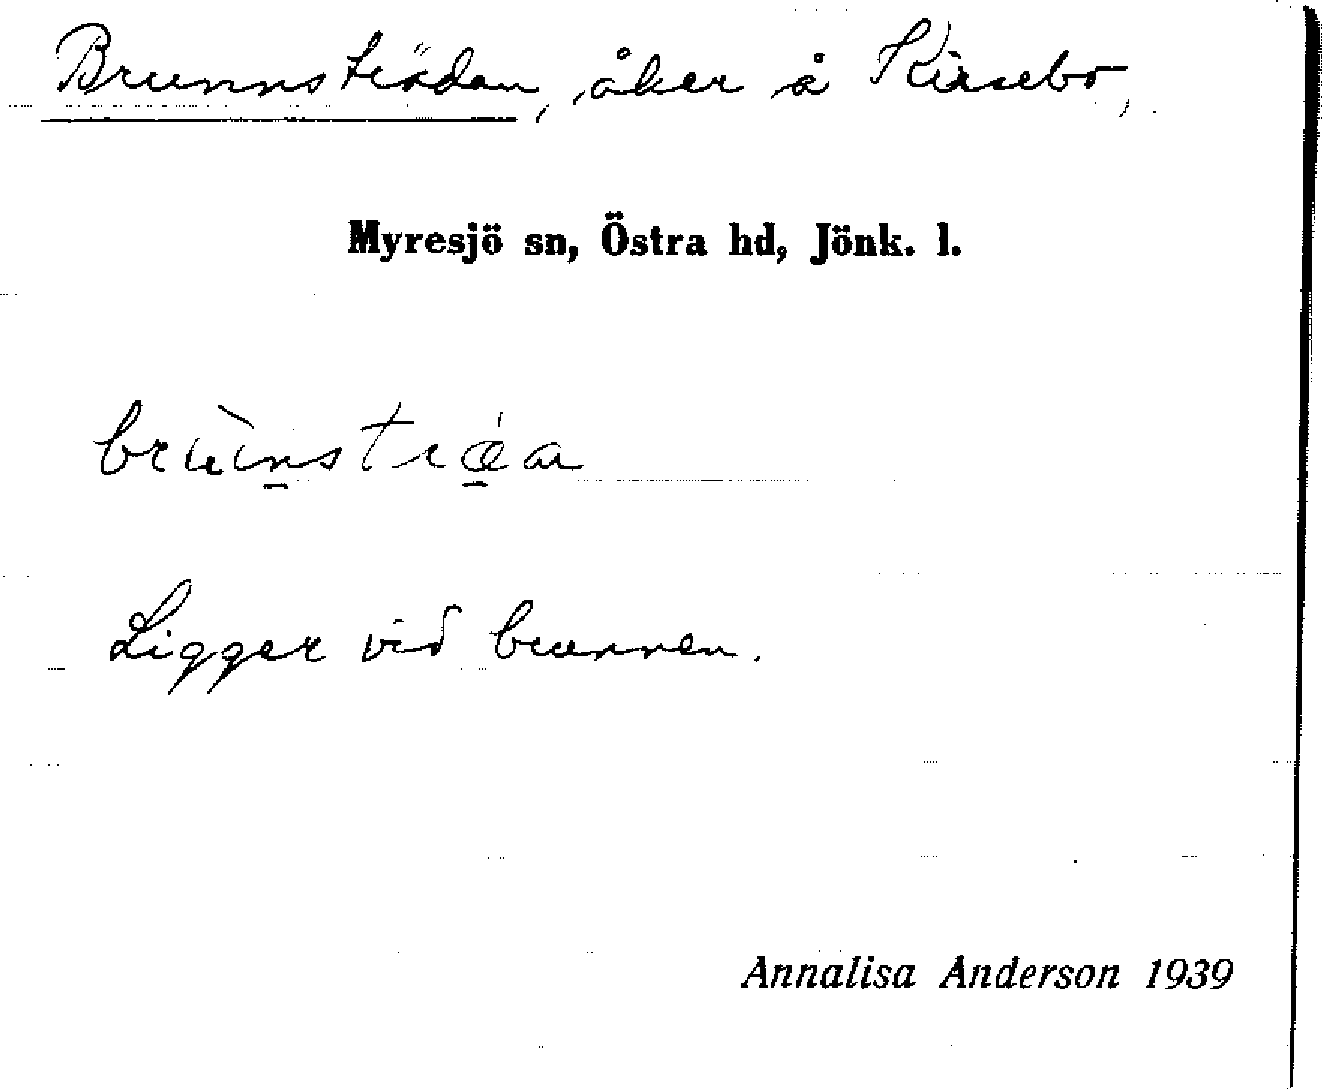 Brunnsträdan, åker å Kiasebo,
Myresjö sn, Östra hd, Jönk. l.
Ligger vid brunnen.
Annalisa Anderson 1939